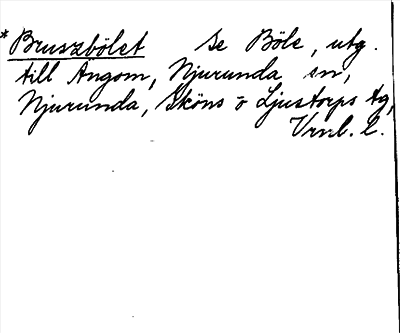 * Bruszbölet se Böle, utg.
till Ångom, Njurunda sn,
Njurunda, Sköns o Ljustorps tg,
Vrnl. l.